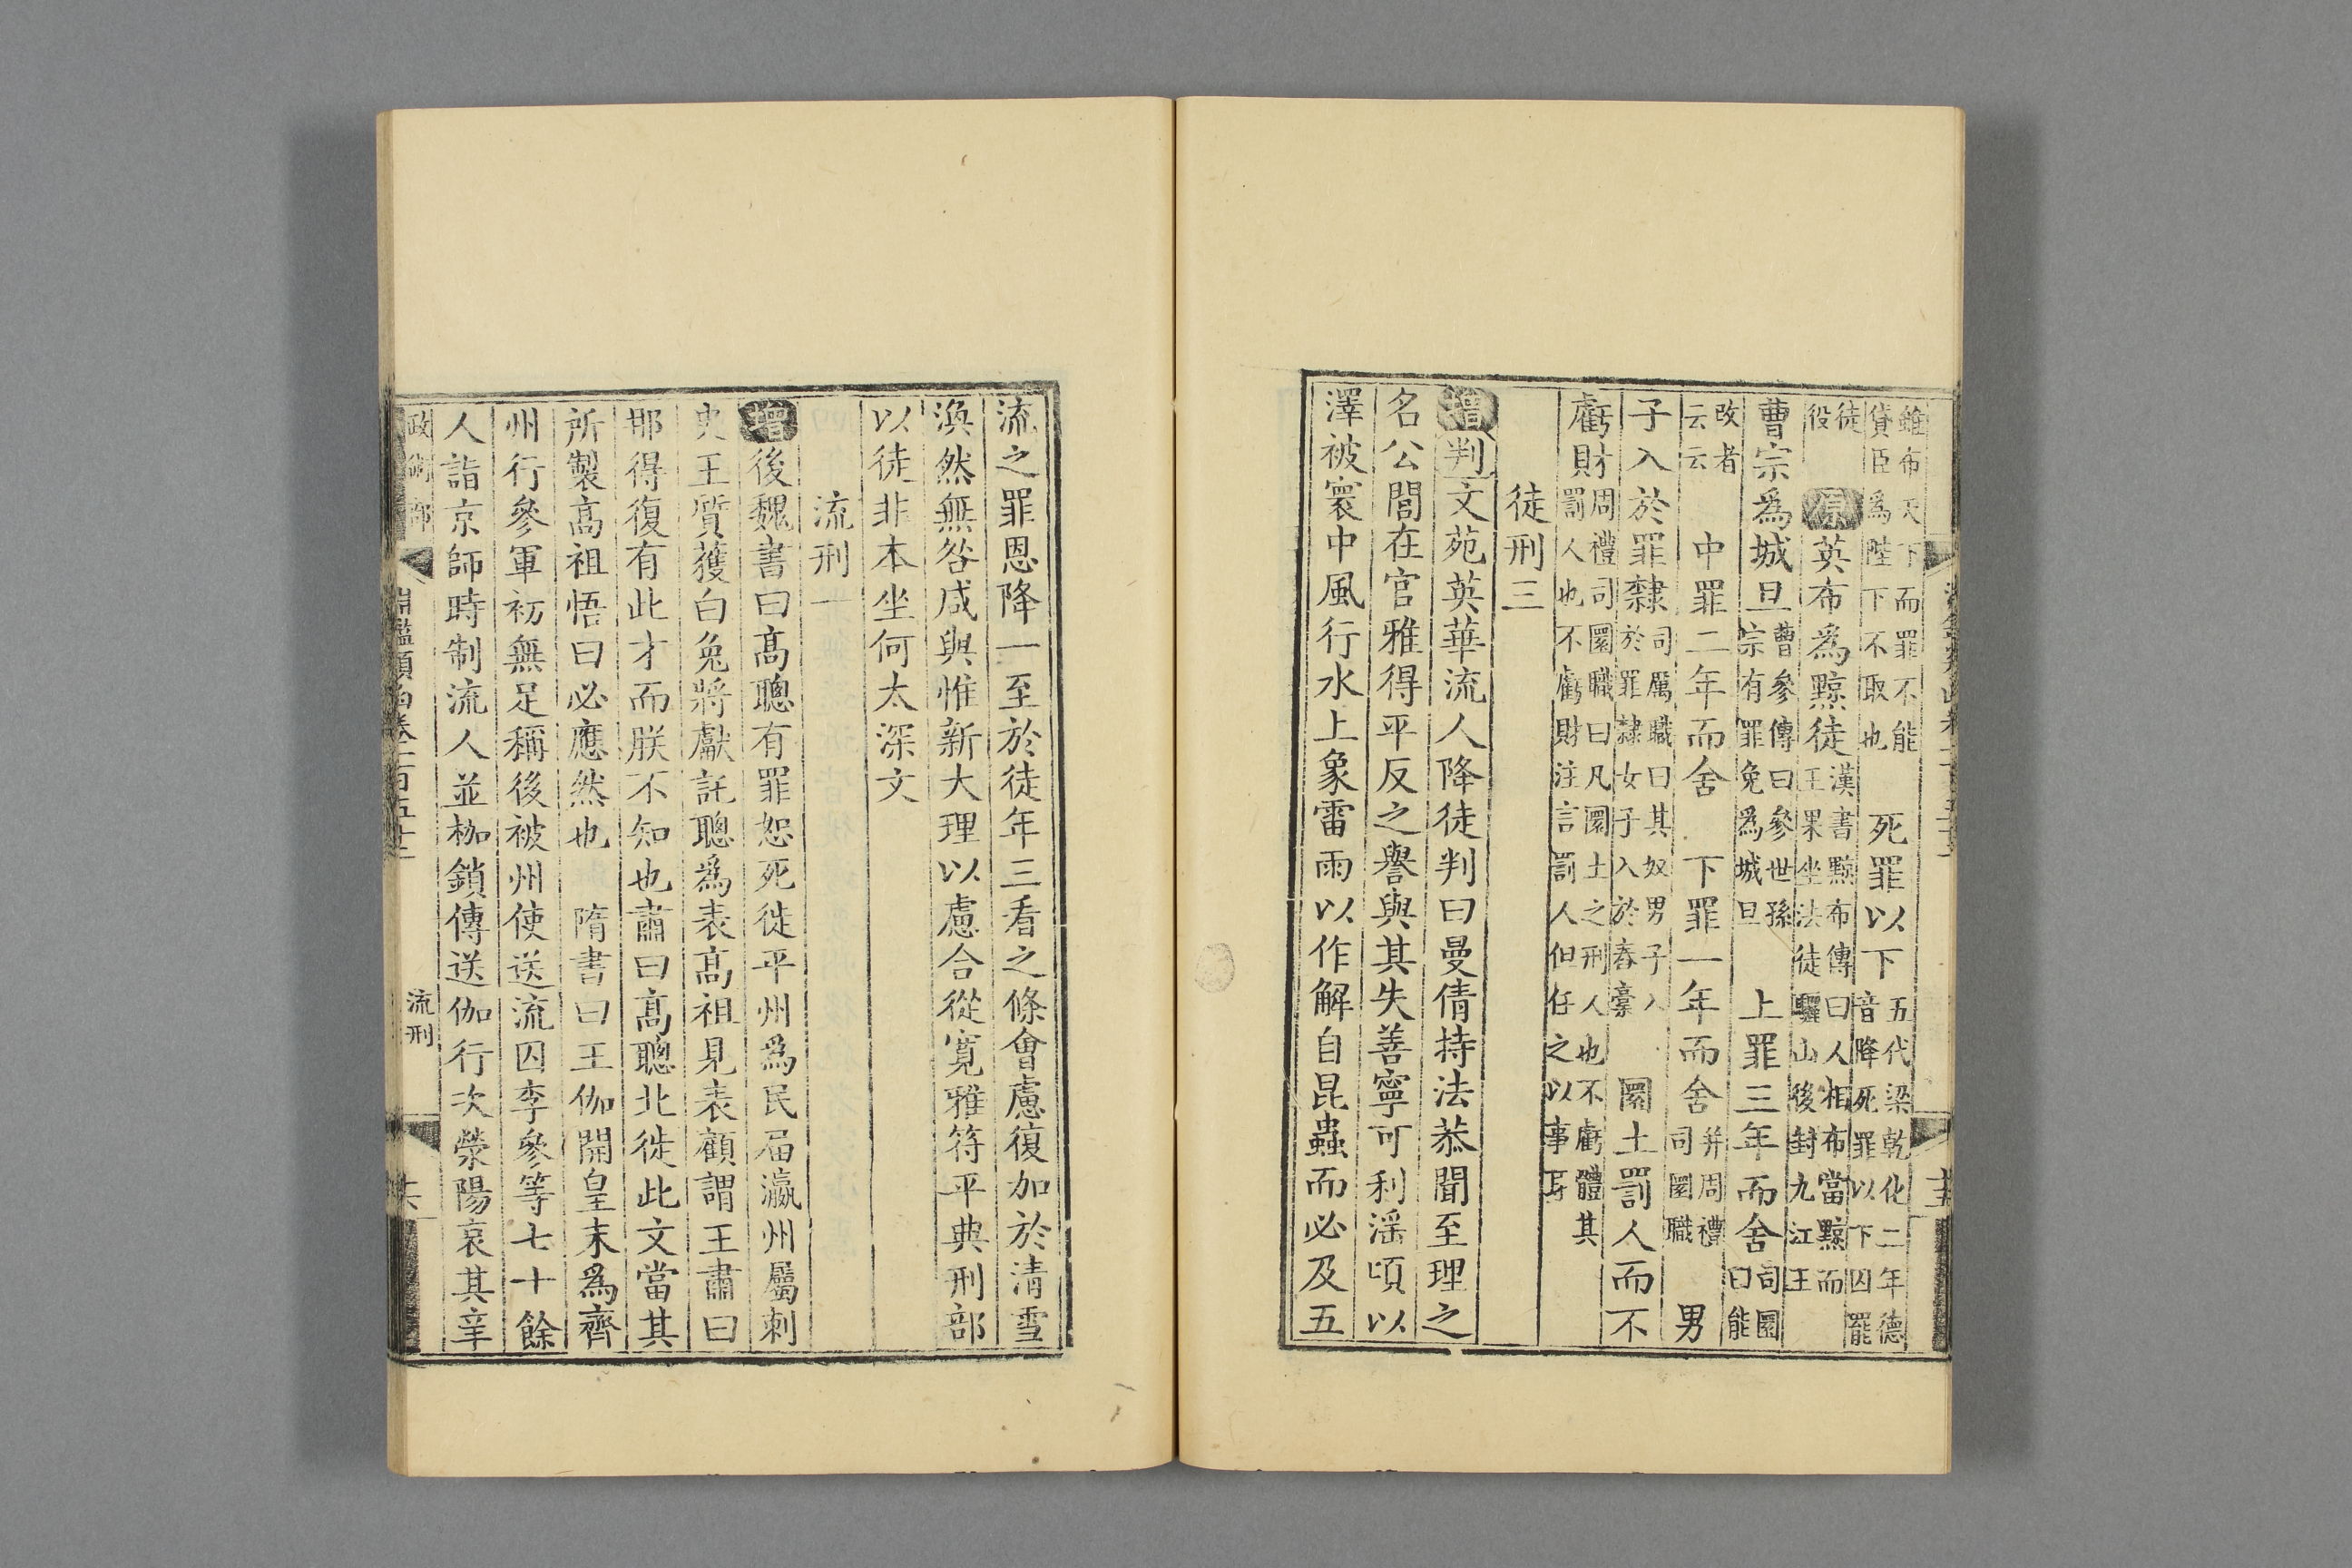 雖布天下而罪不能
貸臣爲陛下不取也　死罪以下　五代梁乾化二年德
音降死罪以下囚罷
徒
役　原　英布爲黥徒　漢書黥布傳曰人相布當黥而
王果坐法徒驪山後封九江王
曹宗爲城旦　曹參傳曰參世孫
宗有罪免爲城旦　上罪三年而舍　司圜
曰能
改者
云云　中罪二年而舍　下罪一年而舍　并周禮
司圜職　男
子入於罪隸　司厲職曰其奴男子入
於罪隸女子入於舂槀　圜土罰人而不
虧財　周禮司圜職曰凡圜土之刑人也不虧體其
罰人也不虧財注言罰人但任之以事耳
徒刑三
增　判　文苑英華流人降徒判曰曼倩持法恭聞至理之
名公閻在官雅得平反之譽與其失善寧可利滛頃以
澤被寰中風行水上象雷雨以作解自昆蟲而必及五
十五
流之罪恩降一至於徒年三看之條會慮復加於清雪
渙然無咎咸與惟新大理以慮合從寛雅符平典刑部
以徒非本坐何太深文
流刑一
增　後魏書曰高聰有罪恕死徙平州爲民届瀛州屬刺
史王質獲白兔將獻託聰爲表高祖見表顧謂王肅曰
那得復有此才而朕不知也肅曰高聰北徙此文當其
所製高祖悟曰必應然也　隋書曰王伽開皇末爲齊
州行參軍初無足稱後被州使送流囚李參等七十餘
人詣京師時制流人並枷鎖傳送伽行次滎陽哀其辛
政術部　淵鑑類函卷一百五十三　流刑